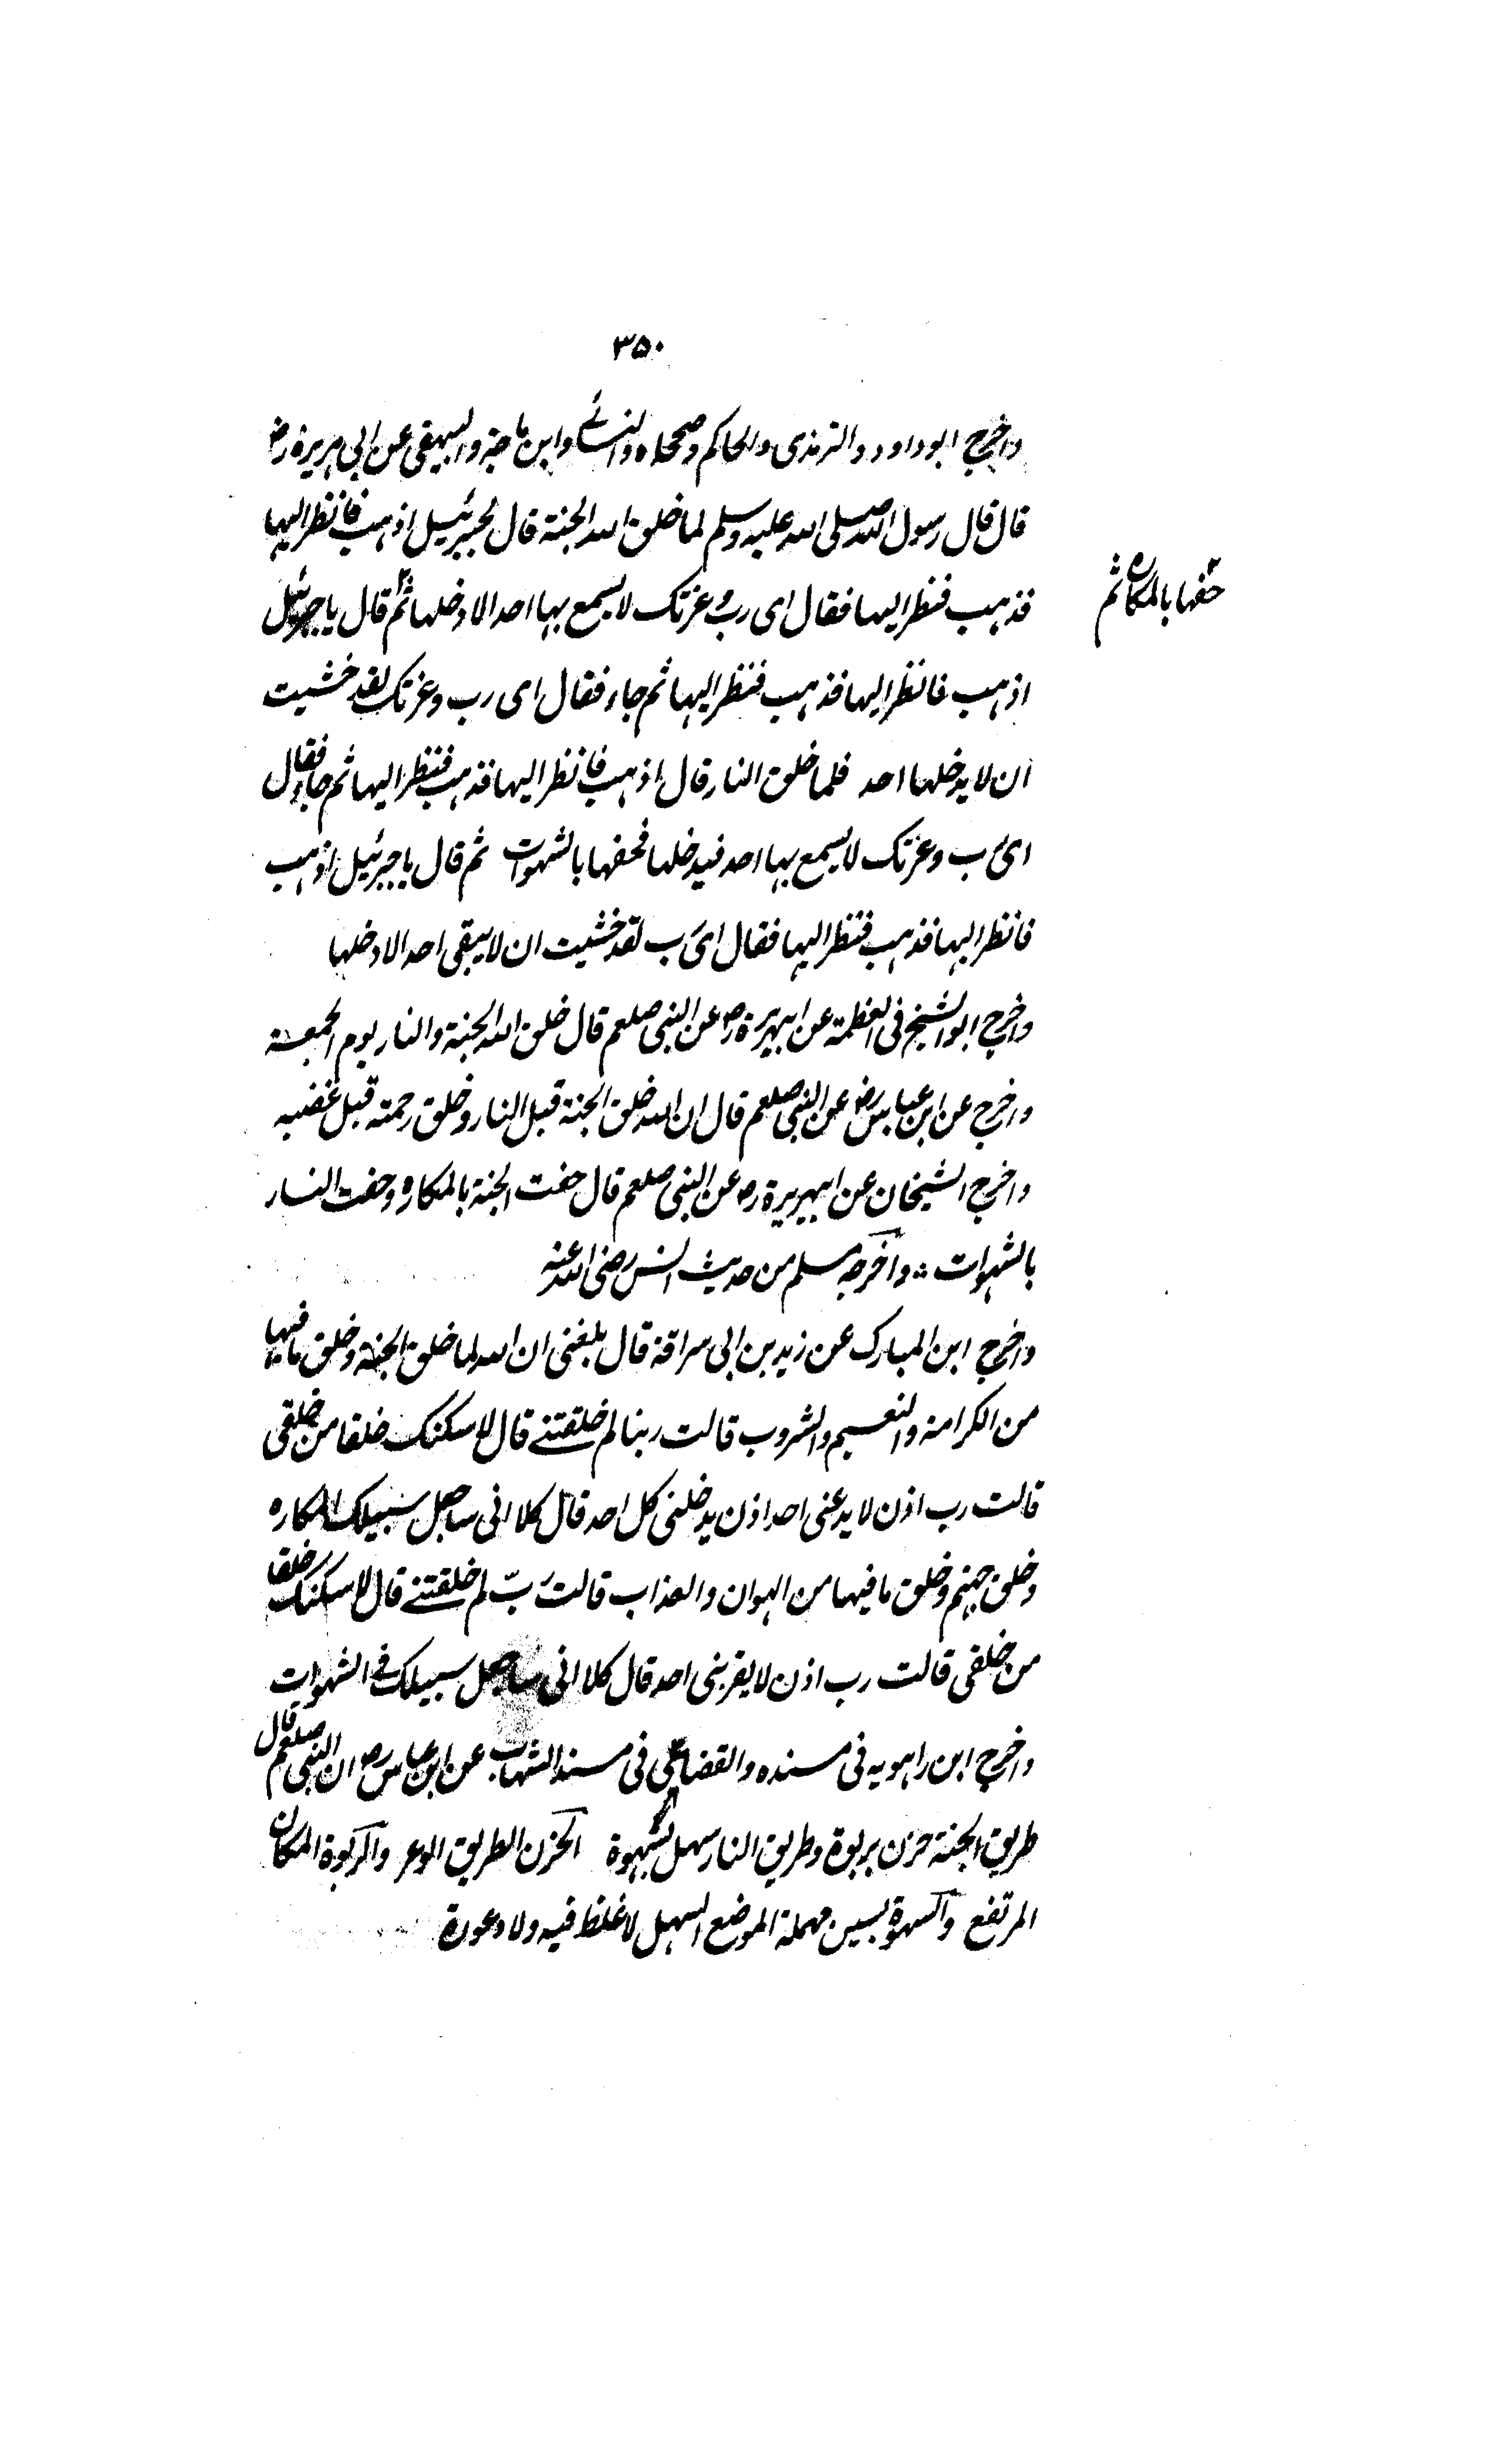 ۳۵۰
واخرج ابوداود والترمذی والحاکم وصححاه والنسائے وابن ماجة والبیهقی عن ابی هریرة رض
قال قال رسول الله صلی الله علیه وسلم لما خلق الله الجنة قال لجبرئیل اذهب فانظر الیها
فذهب فنظر الیها فقال ای رب وعزتک لا یسمع بها احد الا دخلها ثم قال یا جبرئیل
حفها بالمکاره ثم
اذهب فانظر الیها فذهب فنظر الیها ثم جاء فقال ای رب وعزتک لقد خشیت
ان لا یدخلها احد فلما خلق النار قال اذهب فانظر الیها فذهب فنظر الیها ثم جاء فقال
ای رب وعزتک لا یسمع بها احد فیدخلها فحفها بالشهوات ثم قال یا جبرئیل اذهب
فانظر الیها فذهب فنظر الیها فقال ای رب لقد خشیت ان لا یبقی احد الا دخلها
واخرج ابو الشیخ فی العظمة عن ابیهریرة رض عن النبی صلعم قال خلق الله الجنة والنار یوم الجمعة
واخرج عن ابن عباس رض عن النبی صلعم قال ان الله خلق الجنة قبل النار وخلق رحمته قبل غضبه
واخرج الشیخان عن ابیهریرة رض عن النبی صلعم قال حفت الجنة بالمکاره وحفت النار
بالشهوات ٭ واخرجه مسلم من حدیث انس رضی الله عنه
واخرج ابن المبارک عن زید بن ابی سراقة قال بلغنی ان الله لما خلق الجنة وخلق ما فیها
من الکرامة والنعیم والشروب قالت ربنا لم خلقتنے قال لاسکنک خلقا من خلقی
قالت رب اذن لا یدعنی احد اذن یدخلنی کل احد قال کلا انی ساجعل سبیلک المکاره
وخلق جهنم وخلق ما فیها من الهوان والعذاب قالت رب لم خلقتنے قال لاسکنک خلقا
من خلقی قالت رب اذن لا یقربنی احد قال کلا انی ساجعل سبیلک فے الشهوات
واخرج ابن راهویه فی مسنده والقضاعی فی مسند الشهاب عن ابن عباس رض ان النبی صلعم قال
طریق الجنة حزن بربوة وطریق النار سهل بشهوة الحزن الطریق الوعر والربوة المکان
المرتفع والسهوة بسین مهملة الموضع السهل لا غلظ فیه ولا وعورة